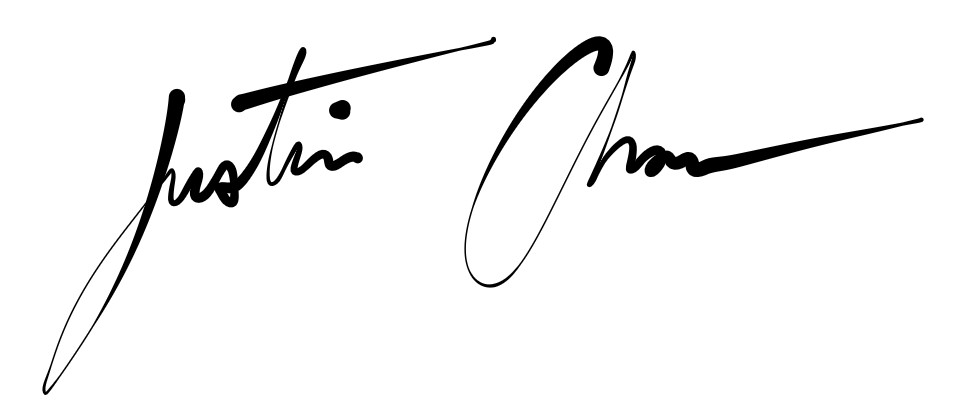 Justin Chan